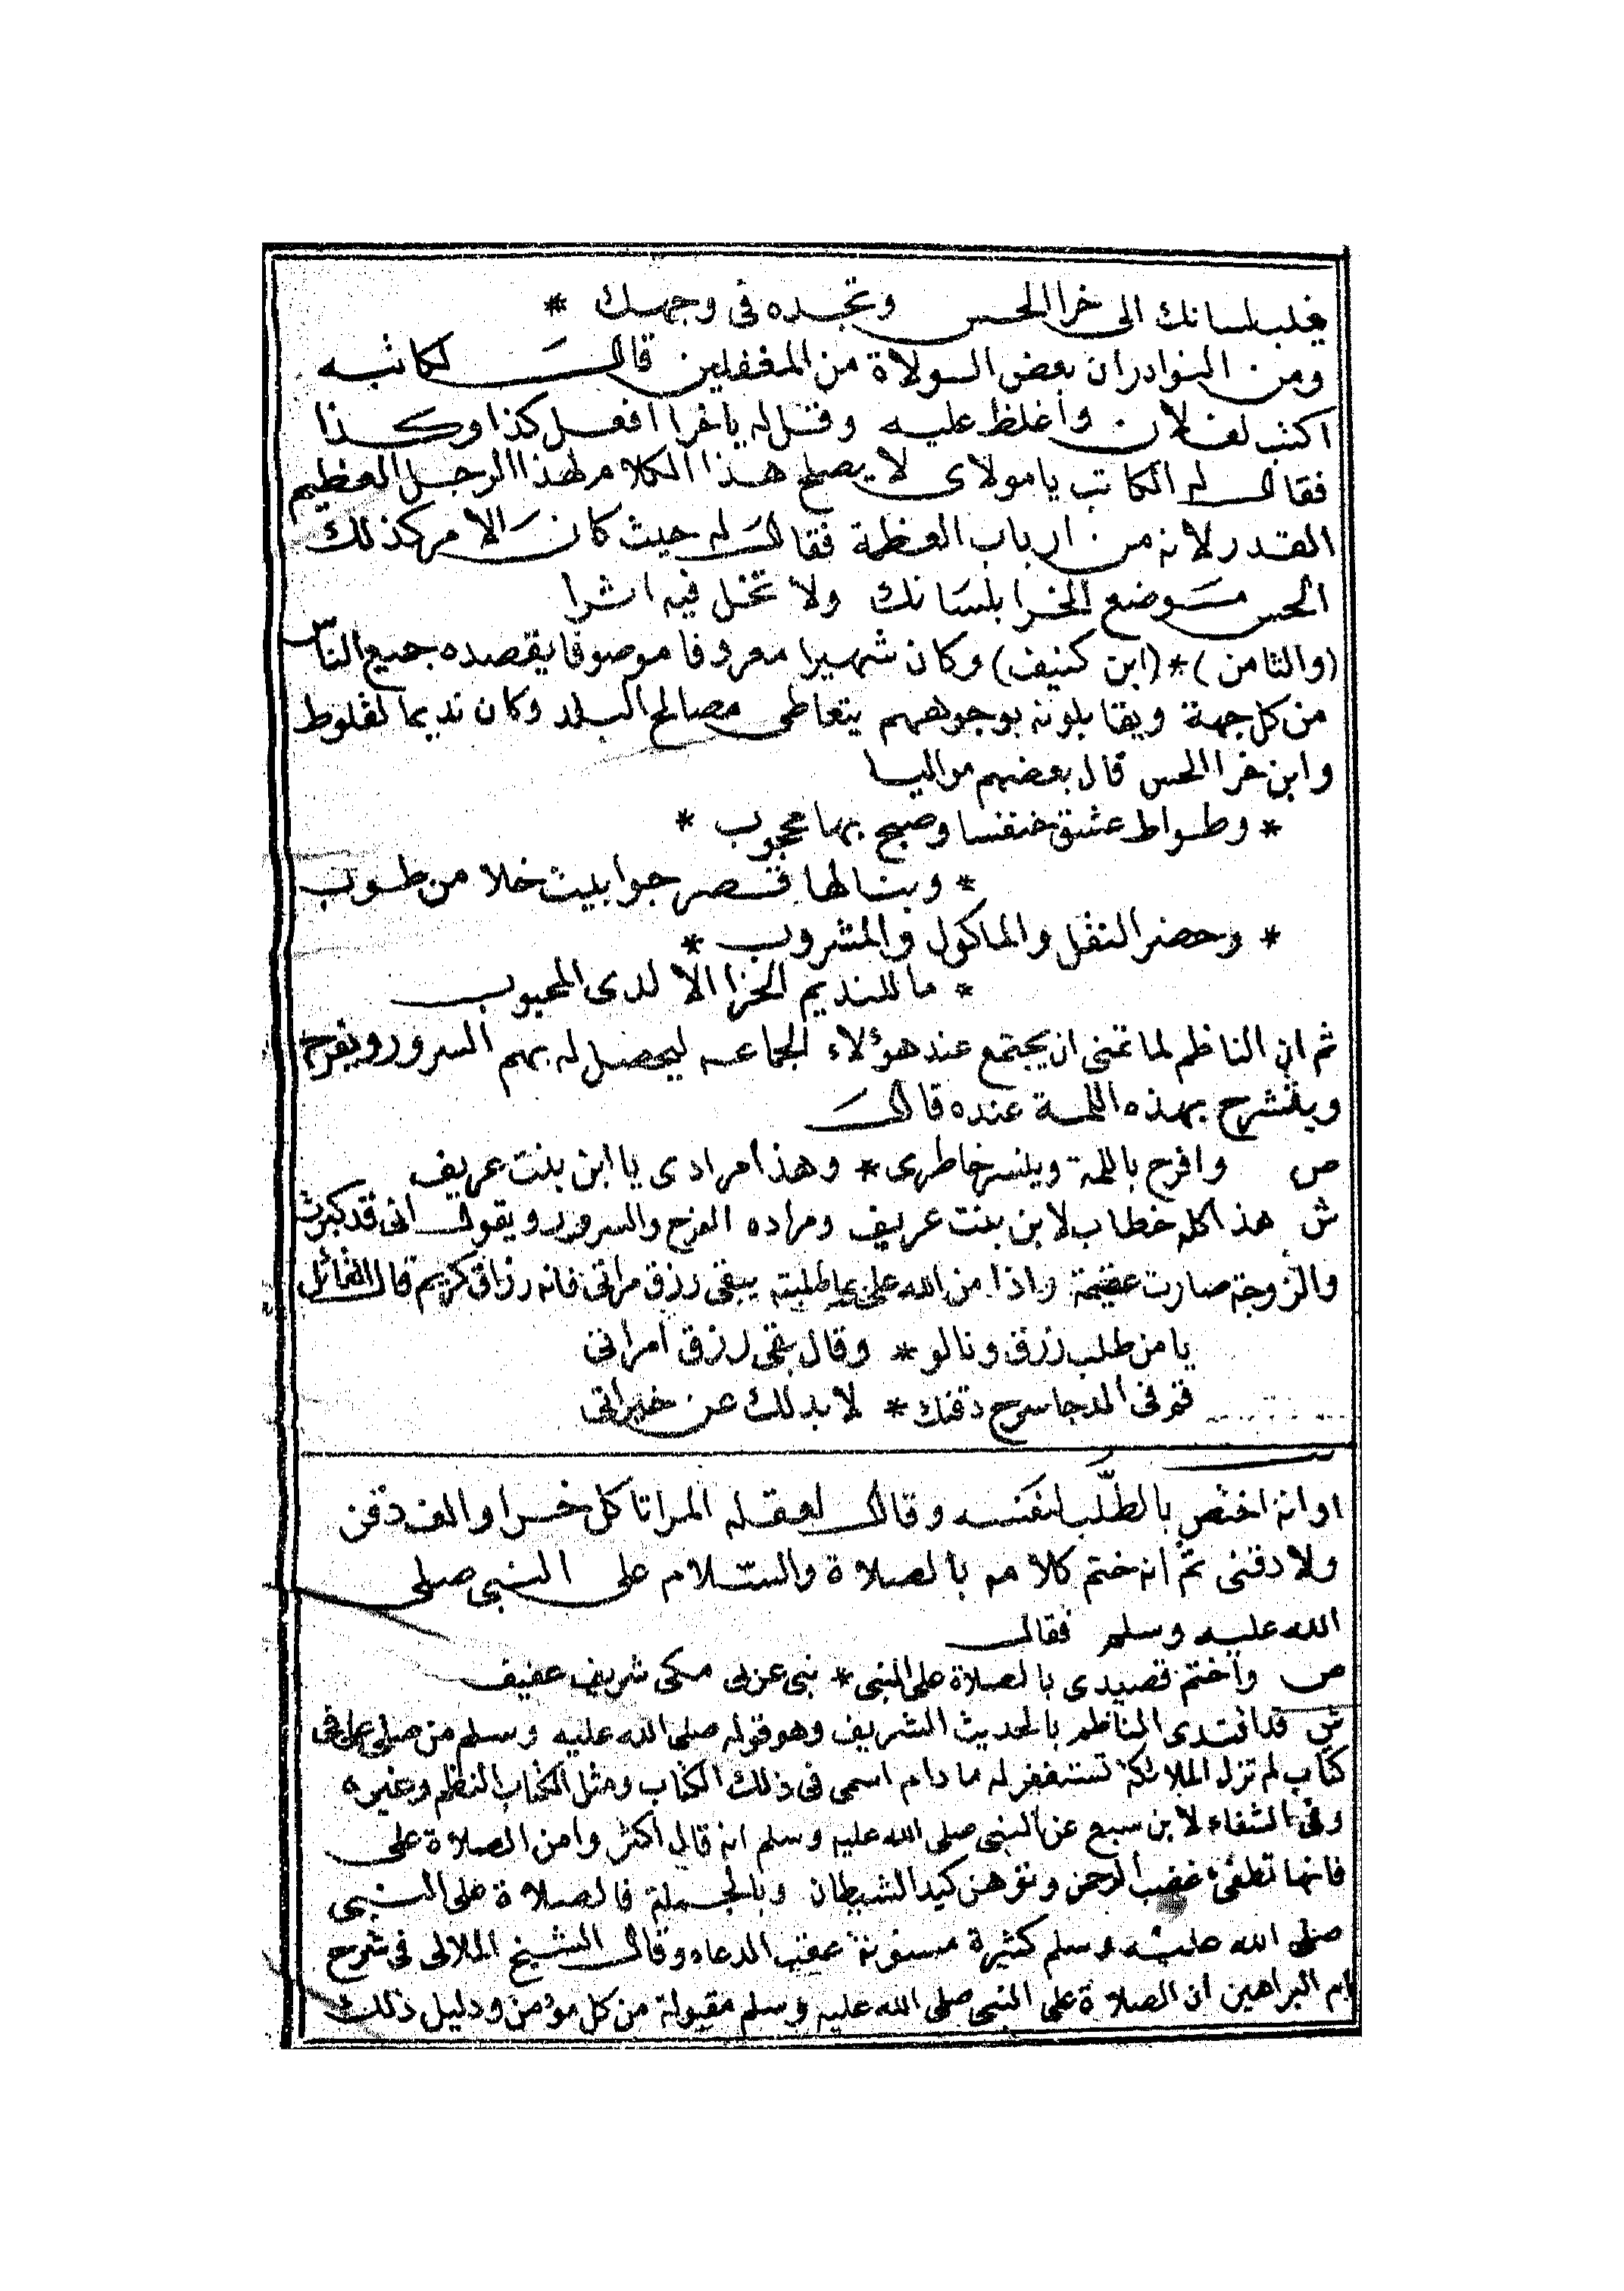 يغلب لسانك الى خرا الحس وتجده فى وجهك *
ومن النوادر ان بعض الولاة من المغفلين قال لكاتبه
اكتب لفلان واغلظ عليه وقل له يا خرا افعل كذا وكذا
فقال له الكاتب يا مولاى لا يصلح هذا الكلام لهذا الرجل العظيم
القدر لانه من ارباب العظمة فقال له حيث كان الامر كذلك
الحس موضع الخرا بلسانك ولا تخل فيه اثرا
(والثامن) * (ابن كنيف) وكان شهيرا معروفا موصوفا يقصده جميع الناس
من كل جهة ويقابلونه بوجوههم يتعاطى مصالح البلد وكان نديما لقلوط
وابن خرا الحس قال بعضهم مواليا
* وطواط عشق خنفسا وصبح بها معجوب *
* وبنا لها قصر جوا بيت خلا من طوب
* وحضر النقل والماكول والمشروب *
* ما للنديم الخرا الا لدى المحبوب
ثم ان الناظم لما تمنى ان يجتمع عند هؤلاء الجماعه ليحصل له بهم السرور ويفرح
وينشرح بهذه اللمة عنده قال
ص وافرح باللمة وينسر خاطرى * وهذا مرادى يا ابن بنت عريف
ش هذا كله خطاب لابن بنت عريف ومراده الفرح والسرور ويقول انى قد كبرت
والزوجة صارت عقيمة واذا من الله على بما طلبته يبقى رزق مراتى فانه رزاق كريم قال القائل
يا من طلب رزق ونالو * وقال بقى رزق امراتى
قم فى الدجا سرح دقنك * لا بد لك عن خيراتى
او انه اختص بالطلب لنفسه وقال لعقله المرا تاكل خرا والف دقن
ولا دقنى ثم انه ختم كلامه بالصلاة والسلام على النبى صلى
الله عليه وسلم فقال
ص واختم قصيدى بالصلاة على النبى * نبى عربى مكى شريف عفيف
ش قد اقتدى الناظم بالحديث الشريف وهو قوله صلى الله عليه وسلم من صلى على فى
كتاب لم تزل الملائكة تستغفر له ما دام اسمى فى ذلك الكتاب ومثل الكتاب النظم وغيره
وفى الشفاء لابن سبع عن النبى صلى الله عليه وسلم انه قال اكثروا من الصلاة على
فانها تطفئ غضب الرحمن وتوهن كيد الشيطان وبالجملة فالصلاة على النبى
صلى الله عليه وسلم كثيرة مسنونة عقب الدعاء وقال الشيخ الملالى فى شرح
ام البراهين ان الصلاة على النبى صلى الله عليه وسلم مقبولة من كل مؤمن ودليل ذلك